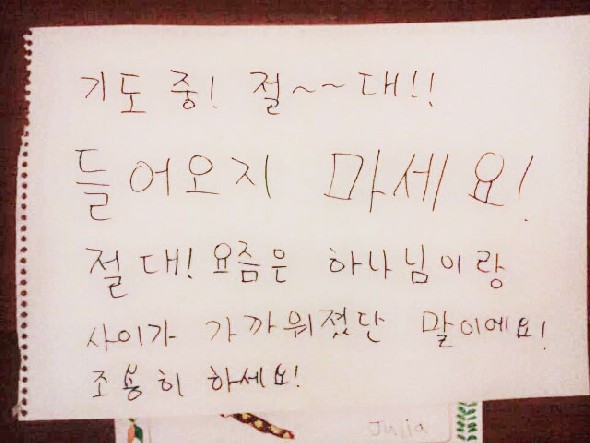 기도 중! 절~~대!!
들어오지 마세요!
절대! 요즘은 하나님이랑
사이가 가까워졌단 말이에요!
조용히 하세요!
Julia